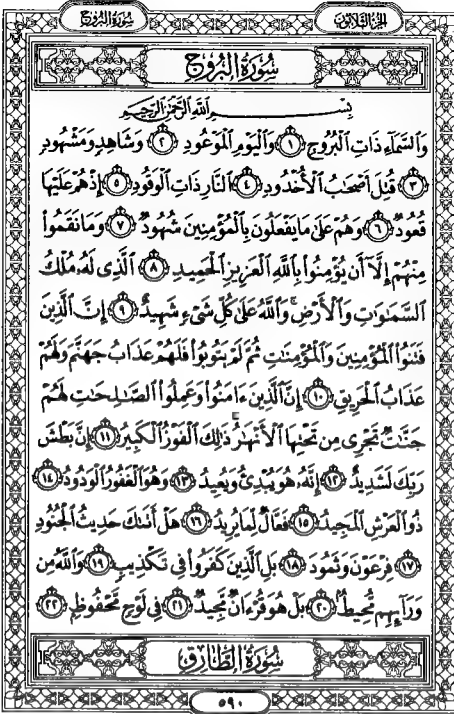 سُورَةُ البُرُوجِ الجُزْءُ الثَّلَاثُونَ
سُورَةُ البُرُوجِ
بِسْمِ اللَّهِ الرَّحْمَنِ الرَّحِيمِ
وَالسَّمَآءِ ذَاتِ الْبُرُوجِ ۝١ وَالْيَوْمِ الْمَوْعُودِ ۝٢ وَشَاهِدٍ وَمَشْهُودٍ
۝٣ قُتِلَ أَصْحَابُ الْأُخْدُودِ ۝٤ النَّارِ ذَاتِ الْوَقُودِ ۝٥ إِذْ هُمْ عَلَيْهَا
قُعُودٌ ۝٦ وَهُمْ عَلَىٰ مَا يَفْعَلُونَ بِالْمُؤْمِنِينَ شُهُودٌ ۝٧ وَمَا نَقَمُوا۟
مِنْهُمْ إِلَّآ أَن يُؤْمِنُوا۟ بِاللَّهِ الْعَزِيزِ الْحَمِيدِ ۝٨ الَّذِى لَهُۥ مُلْكُ
السَّمَٰوَٰتِ وَالْأَرْضِ ۚ وَاللَّهُ عَلَىٰ كُلِّ شَىْءٍ شَهِيدٌ ۝٩ إِنَّ الَّذِينَ
فَتَنُوا۟ الْمُؤْمِنِينَ وَالْمُؤْمِنَٰتِ ثُمَّ لَمْ يَتُوبُوا۟ فَلَهُمْ عَذَابُ جَهَنَّمَ وَلَهُمْ
عَذَابُ الْحَرِيقِ ۝١٠ إِنَّ الَّذِينَ ءَامَنُوا۟ وَعَمِلُوا۟ الصَّٰلِحَٰتِ لَهُمْ
جَنَّٰتٌ تَجْرِى مِن تَحْتِهَا الْأَنْهَٰرُ ۚ ذَٰلِكَ الْفَوْزُ الْكَبِيرُ ۝١١ إِنَّ بَطْشَ
رَبِّكَ لَشَدِيدٌ ۝١٢ إِنَّهُۥ هُوَ يُبْدِئُ وَيُعِيدُ ۝١٣ وَهُوَ الْغَفُورُ الْوَدُودُ ۝١٤
ذُو الْعَرْشِ الْمَجِيدُ ۝١٥ فَعَّالٌ لِّمَا يُرِيدُ ۝١٦ هَلْ أَتَىٰكَ حَدِيثُ الْجُنُودِ
۝١٧ فِرْعَوْنَ وَثَمُودَ ۝١٨ بَلِ الَّذِينَ كَفَرُوا۟ فِى تَكْذِيبٍ ۝١٩ وَاللَّهُ مِن
وَرَآئِهِم مُّحِيطٌۢ ۝٢٠ بَلْ هُوَ قُرْءَانٌ مَّجِيدٌ ۝٢١ فِى لَوْحٍ مَّحْفُوظٍۭ ۝٢٢
سُورَةُ الطَّارِقِ
٥٩٠